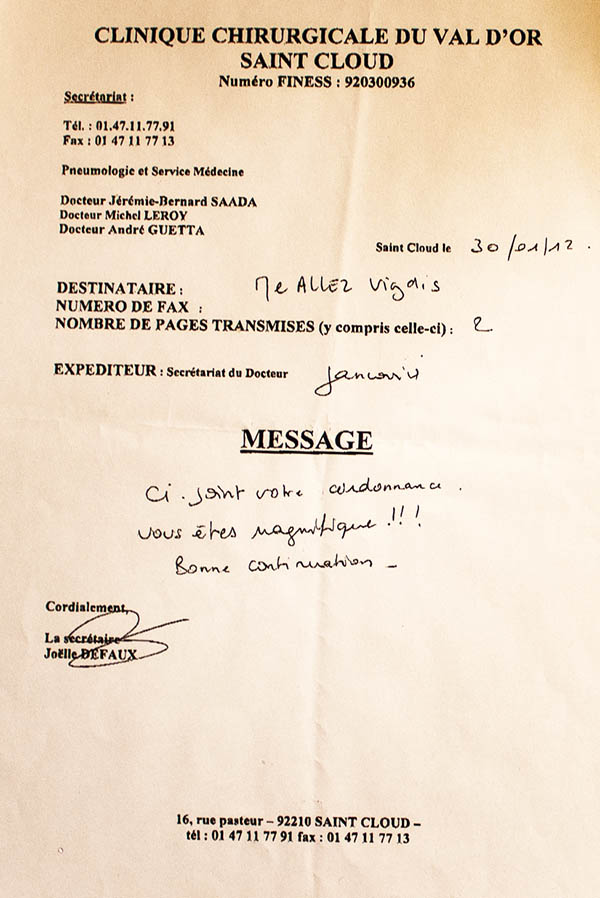 CLINIQUE CHIRURGICALE DU VAL D'OR
SAINT CLOUD
Numéro FINESS : 920300936
Secrétariat :
Tél. : 01.47.11.77.91
Fax : 01 47 11 77 13
Pneumologie et Service Médecine
Docteur Jérémie-Bernard SAADA
Docteur Michel LEROY
Docteur André GUETTA
Saint Cloud le 30/01/12.
DESTINATAIRE : Me ALLEZ Vigdis
NUMERO DE FAX :
NOMBRE DE PAGES TRANSMISES (y compris celle-ci) : 2
EXPEDITEUR : Secrétariat du Docteur
MESSAGE
Ci-joint votre ordonnance.
vous êtes magnifique !!!
Bonne continuation -
Cordialement,
La secrétaire
Joëlle DEFAUX
16, rue pasteur – 92210 SAINT CLOUD –
tél : 01 47 11 77 91 fax : 01 47 11 77 13